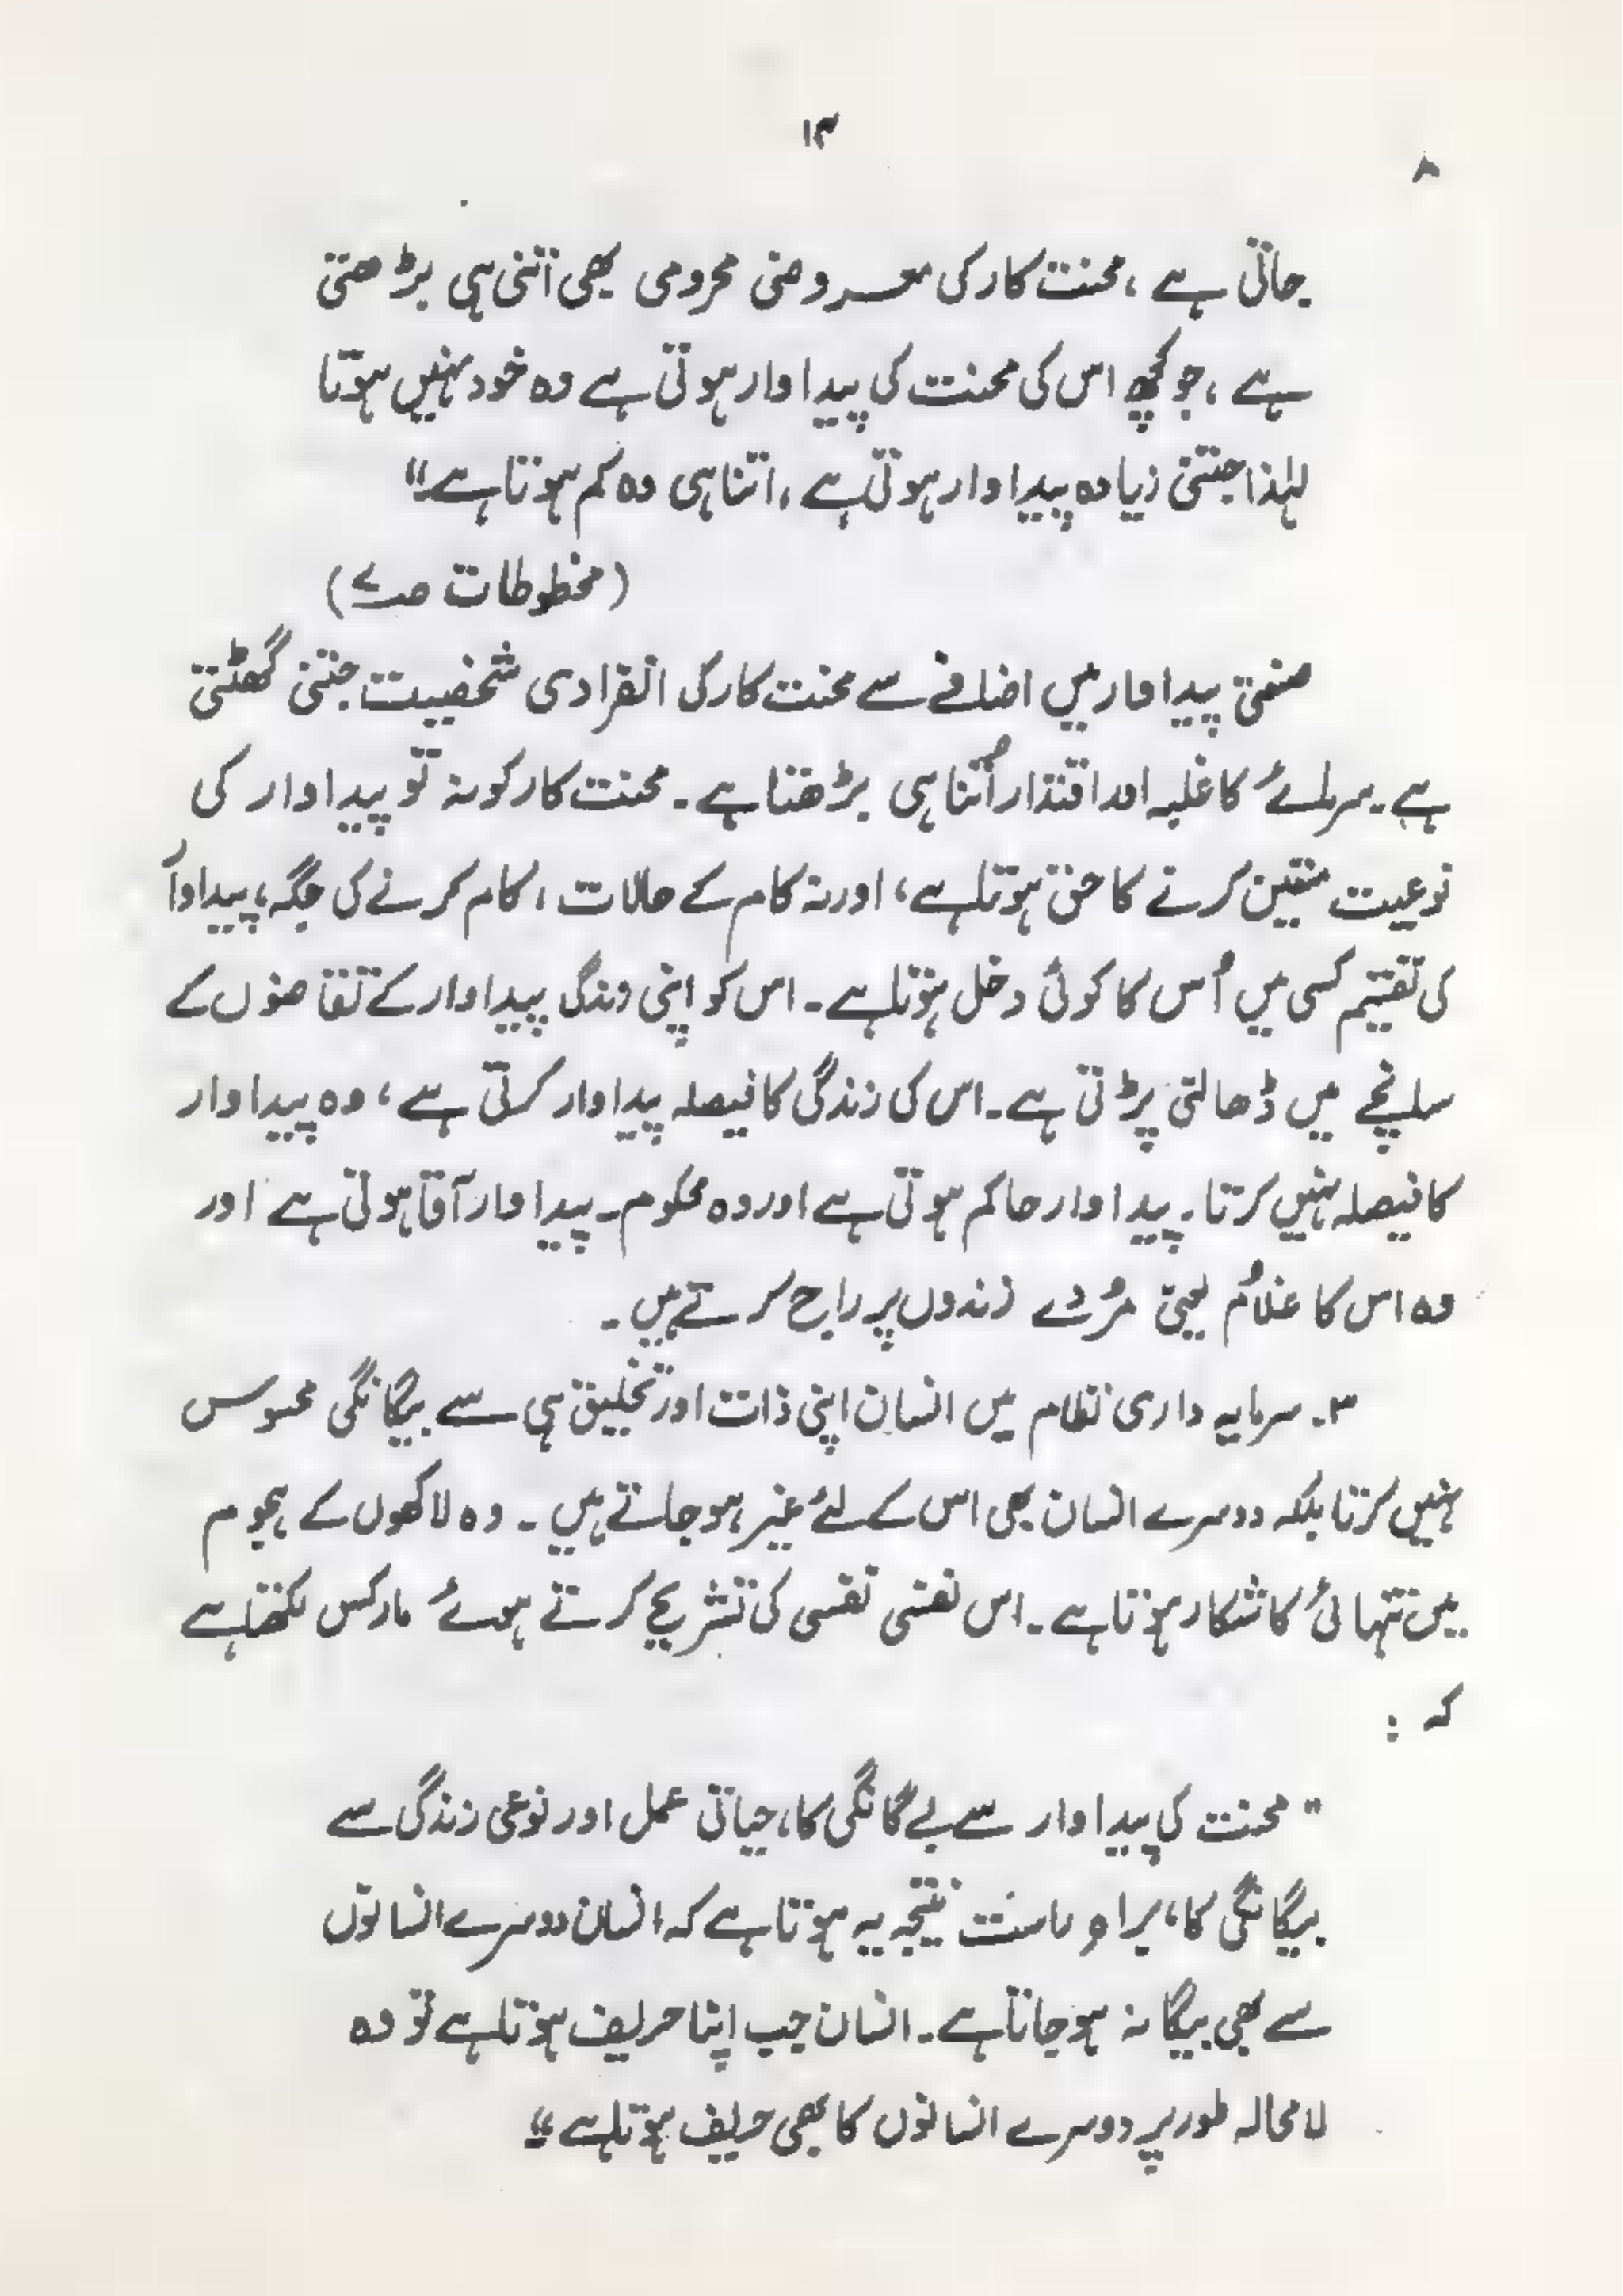 ۱۳
۸
جاتی ہے ، محنت کار کی معروضی محرومی بھی اتنی ہی بڑھتی
ہے ، جو کچھ اس کی محنت کی پیداوار ہوتی ہے وہ خود نہیں ہوتا
لہٰذا جتنی زیادہ پیداوار ہوتی ہے ، اتنا ہی وہ کم ہوتا ہے"
(مخطوطات ص)
صنعتی پیداوار میں اضافے سے محنت کار کی انفرادی شخصیت جتنی گھٹتی
ہے۔ سرمائے کا غلبہ اور اقتدار اُتنا ہی بڑھتا ہے۔ محنت کار کو نہ تو پیداوار کی
نوعیت متعین کرنے کا حق ہوتا ہے، اور نہ کام کے حالات ، کام کرنے کی جگہ، پیداوار
کی تقسیم کسی میں اُس کا کوئی دخل ہوتا ہے۔ اس کو اپنی زندگی پیداوار کے تقاضوں کے
سانچے میں ڈھالنی پڑتی ہے۔ اس کی زندگی کا فیصلہ پیداوار کرتی ہے ، وہ پیداوار
کا فیصلہ نہیں کرتا۔ پیداوار حاکم ہوتی ہے اور وہ محکوم۔ پیداوار آقا ہوتی ہے اور
وہ اس کا غلام یعنی مُردے زندوں پر راج کرتے ہیں ۔
۳۔ سرمایہ داری نظام میں انسان اپنی ذات اور تخلیق ہی سے بیگانگی محسوس
نہیں کرتا بلکہ دوسرے انسان بھی اس کے لئے غیر ہو جاتے ہیں ۔ وہ لاکھوں کے ہجوم
میں تنہائی کا شکار ہوتا ہے ۔ اس نفسی نفسی کی تشریح کرتے ہوئے مارکس لکھتا ہے
کہ :
" محنت کی پیداوار سے بے گانگی کا، حیاتی عمل اور نوعی زندگی سے
بیگانگی کا، براہِ راست نتیجہ یہ ہوتا ہے کہ انسان دوسرے انسانوں
سے بھی بیگانہ ہو جاتا ہے۔ انسان جب اپنا حریف ہوتا ہے تو وہ
لامحالہ طور پر دوسرے انسانوں کا بھی حریف ہوتا ہے"